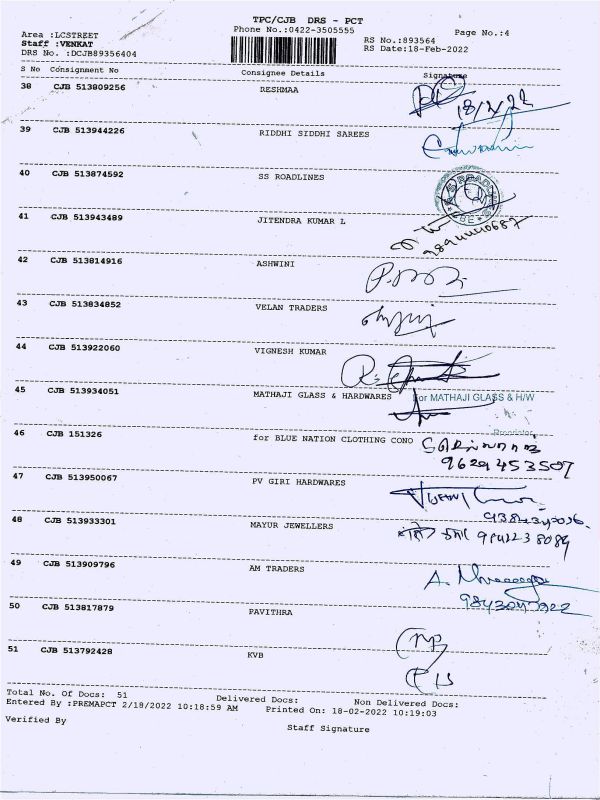 TPC/CJB DRS - PCT
Phone No.:0422-3505555
Page No.:4
Area :LCSTREET
Staff :VENKAT
DRS No. :DCJB89356404
RS No.:893564
RS Date:18-Feb-2022
S No Consignment No Consignee Details Signature
38 CJB 513809256 RESHMAA
18/2/22
39 CJB 513944226 RIDDHI SIDDHI SAREES
40 CJB 513874592 SS ROADLINES
41 CJB 513943489 JITENDRA KUMAR L
42 CJB 513814916 ASHWINI
43 CJB 513834852 VELAN TRADERS
44 CJB 513922060 VIGNESH KUMAR
45 CJB 513934051 MATHAJI GLASS & HARDWARES For MATHAJI GLASS & H/W
Proprietor
46 CJB 151326 for BLUE NATION CLOTHING CONO
9629453507
47 CJB 513950067 PV GIRI HARDWARES
48 CJB 513933301 MAYUR JEWELLERS
49 CJB 513909796 AM TRADERS
50 CJB 513817879 PAVITHRA
51 CJB 513792428 KVB
Total No. Of Docs: 51 Delivered Docs: Non Delivered Docs:
Entered By :PREMAPCT 2/18/2022 10:18:59 AM Printed On: 18-02-2022 10:19:03
Verified By
Staff Signature